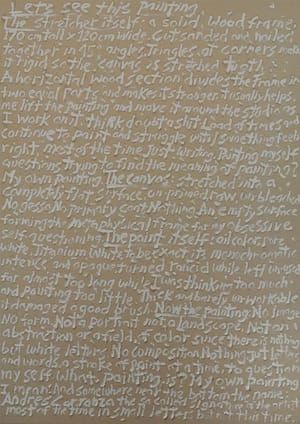 Let's see this painting
The stretcher itself: a solid wood frame,
70 cm tall x 120 cm wide. Cut sanded and nailed
together in 45° angles. Triangles at corners make
it rigid so the canvas is stretched both
A horizontal wood section divides the frame in
two equal parts and makes it stronger
me lift the painting and move it around the studio as
I work on it think about shit Load of times and
continue to paint and struggle with something feels
right most of the time just writing Painting myself
questions trying to find the meaning of painting?
My own painting. The canvas: stretched into a
completely flat surface un primed raw, un bleached
No gesso No primary coat Nothing An empty surface
forming the metaphysical frame for my obsessive
self questioning. The paint itself: oil color pure
white. Titanium White to be exact its monochromatic
and opaque turned rancid while left unused
for almost too long while I was thinking too much
and Painting too little. Thick and barely un workable
it damaged a good brush. Now the painting: No Image
No form. Not a portrait not a landscape. Not
abstraction or a field of color since there is nothing
but white letters. No composition Nothing just letters
words a stroke of paint at a time, to question
my self What painting is? My own painting
I mean. And somewhere near the bottom the name
most of the time in small letters but not this time.